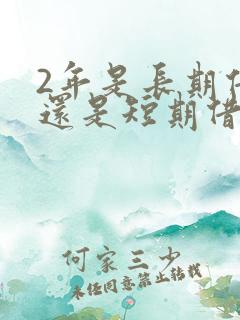 2年是長期
還是短期借
何家三少
未经同意禁止转载